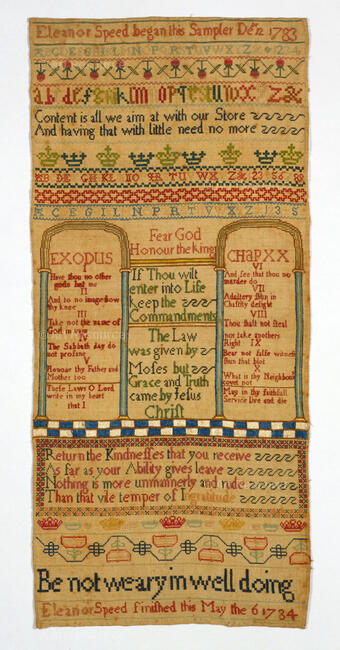 Eleanor Speed began this Sampler Dec 12 1783
Content is all we aim at with our Store
And having that with little need no more
Fear God
Honour the King
EXODUS
I
Have thou no other
gods but me
II
And to no image bow
thy knee
III
Take not the name of
God in vain
IV
The Sabbath day do
not profane
V
Honour thy Father and
Mother too
These Laws O Lord
write in my heart
that I
If Thou wilt
enter into Life
Keep the
Commandments
The Law
was given by
Moses but
Grace and Truth
came by Jesus
Christ
CHAP XX
VI
And see that thou no
murder do
VII
Adultery shun in
Chastity delight
VIII
Thou shalt not steal
nor take anothers
Right IX
Bear not false witness
X
What is thy Neighbours
covet not
May in thy faithfull
Service Live and die
Return the Kindnesses that you receive
As far as your Ability gives leave
Nothing is more unmannerly and rude
Than that vile temper of Ingratitude
Be not weary in well doing
Eleanor Speed finished this May the 6 1784